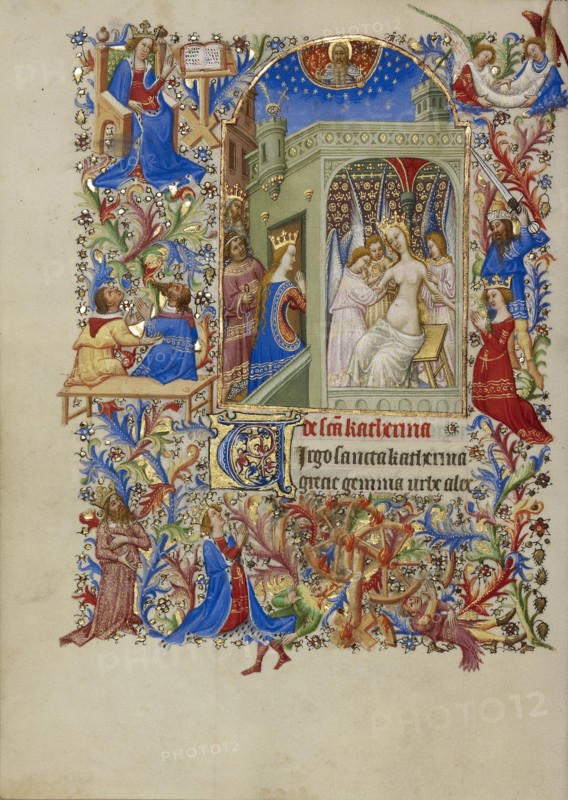 de scā katherina
Virgo sancta katherina
grecie gemma urbe alex
PHOTO12
PHOTO12
PHOTO12